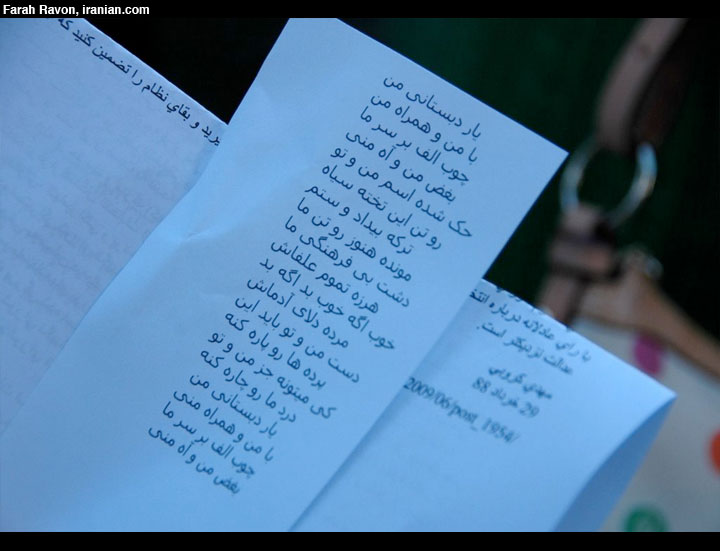 Farah Ravon, iranian.com
یرید و بقای نظام را تضمین کنید که
یار دبستانی من
با من و همراه منی
چوب الف بر سر ما
بغض من و آه منی
حک شده اسم من و تو
رو تن این تخته سیاه
ترکه بیداد و ستم
مونده هنوز رو تن ما
دشت بی فرهنگی ما
هرزه تموم علفاش
خوب اگه خوب بد اگه بد
مرده دلای آدماش
دست من و تو باید این
پرده ها رو پاره کنه
کی میتونه جز من و تو
درد ما رو چاره کنه
یار دبستانی من
با من و همراه منی
چوب الف بر سر ما
بغض من و آه منی
با رای عادلانه درباره
عدالت نزدیکتر است.
مهدی کروبی
29 خرداد 88
2009/06/post_1954/